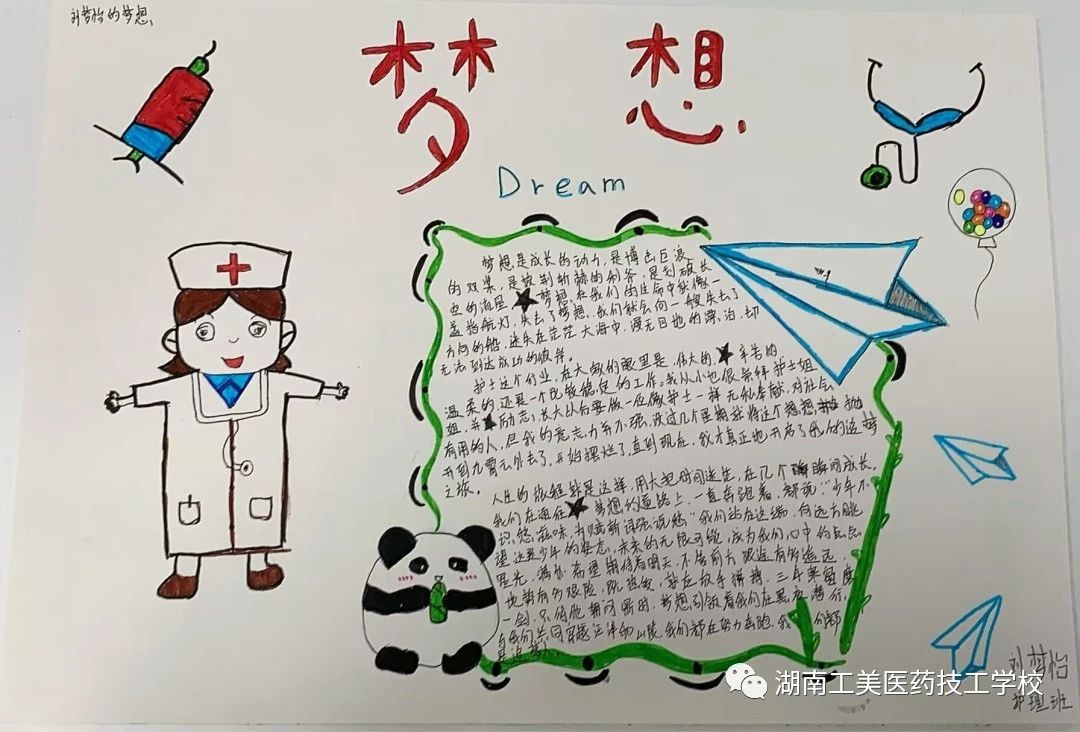 刘梦怡的梦想
梦想
Dream
梦想是成长的动力,是搏击巨浪
的双桨,是披荆斩棘的利斧,是划破长
空的流星★梦想,在我们的生命中就像一
盏指航灯,失去了梦想,我们就会向一艘失去了
方向的船,迷失在茫茫大海中,漫无目地的漂泊,却
无法到达成功的彼岸。
护士这个行业,在大家的眼里是,伟大的★辛苦的
温柔的,还是一个比较稳定的工作,我从小也很崇拜护士姐
姐,并★励志,长大以后要做一位像护士一样无私奉献,对社会
有用的人,但我的意志力并不强,没过几个星期就将这个想想,抛
开到九霄云外去了,开始摆烂了,直到现在,我才真正地开启了我的追梦
之旅。
人生的旅程就是这样,用大把时间迷茫,在几个瞬间成长,
我们在通往★梦想的道路上,一直奔跑着,都说:“少年不
识愁滋味,为赋新词强说愁”我们站在这端,向远方眺
望这是少年的姿态,未来的无限可能,成为我们心中的点点
星光,满怀希望期待着明天,不管前方路途有多遥远,
也期有多艰险,既热爱,就应放手拼搏,三年
一剑,只待他朝问
与我们共同穿越泛泽的山
是追梦人。
刘梦怡
护理班
湖南工美医药技工学校